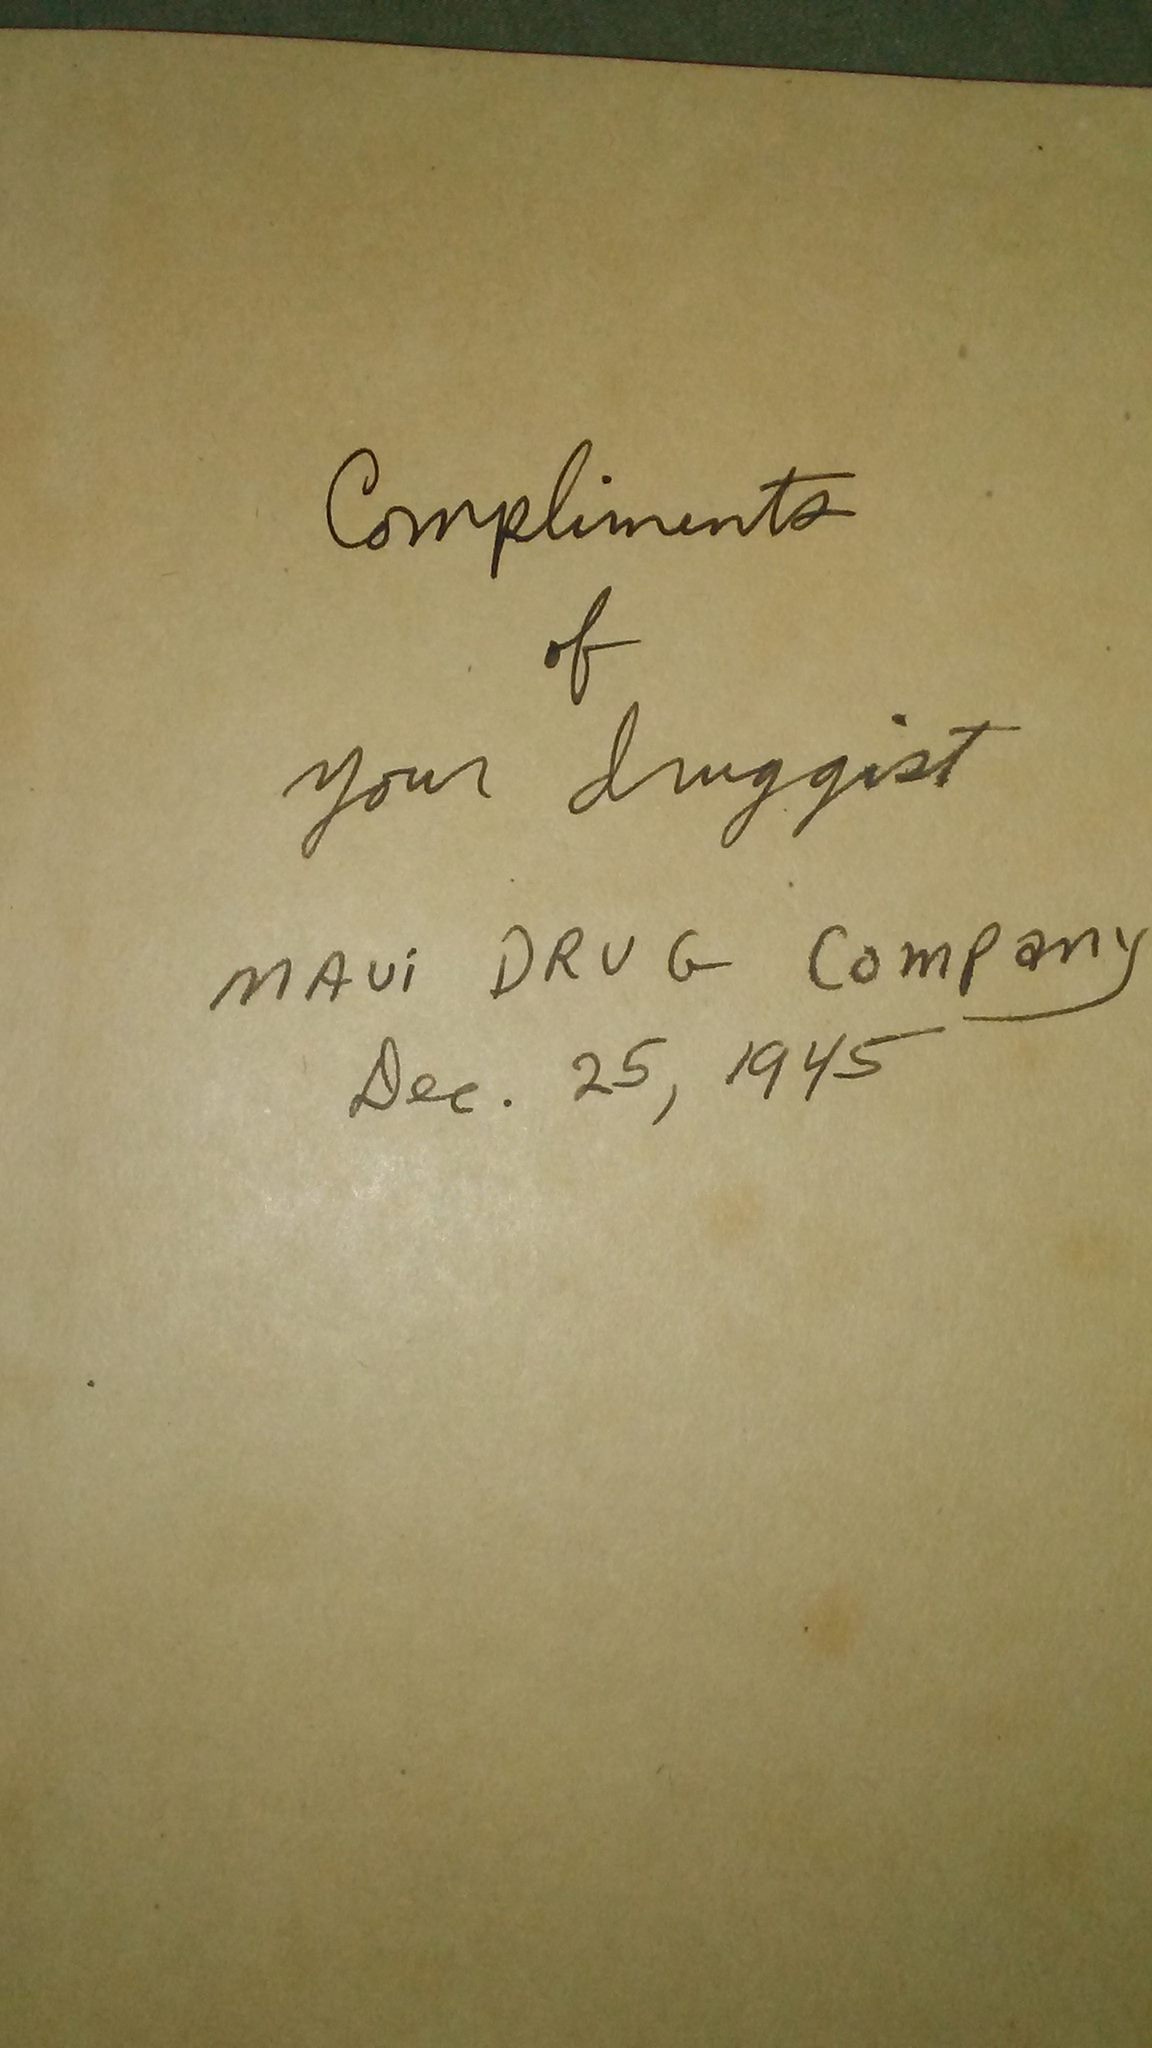 Compliments
of
your druggist
MAUi DRUG Company
Dec. 25, 1945